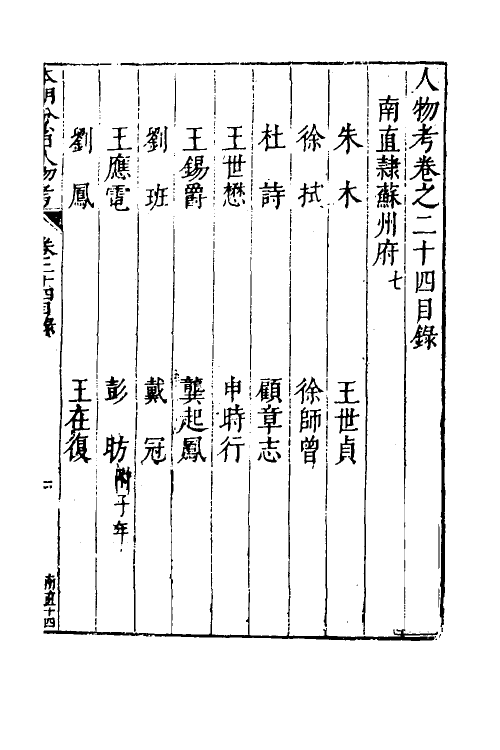 人物考卷之二十四目錄
南直隸蘇州府七
朱木　王世貞
徐栻　徐師曾
杜詩　顧章志
王世懋　申時行
王錫爵　龔起鳳
劉班　戴冠
王應電　彭昉附子年
劉鳳　王在復
本朝分省人物考　卷二十四目錄　一　南直十四